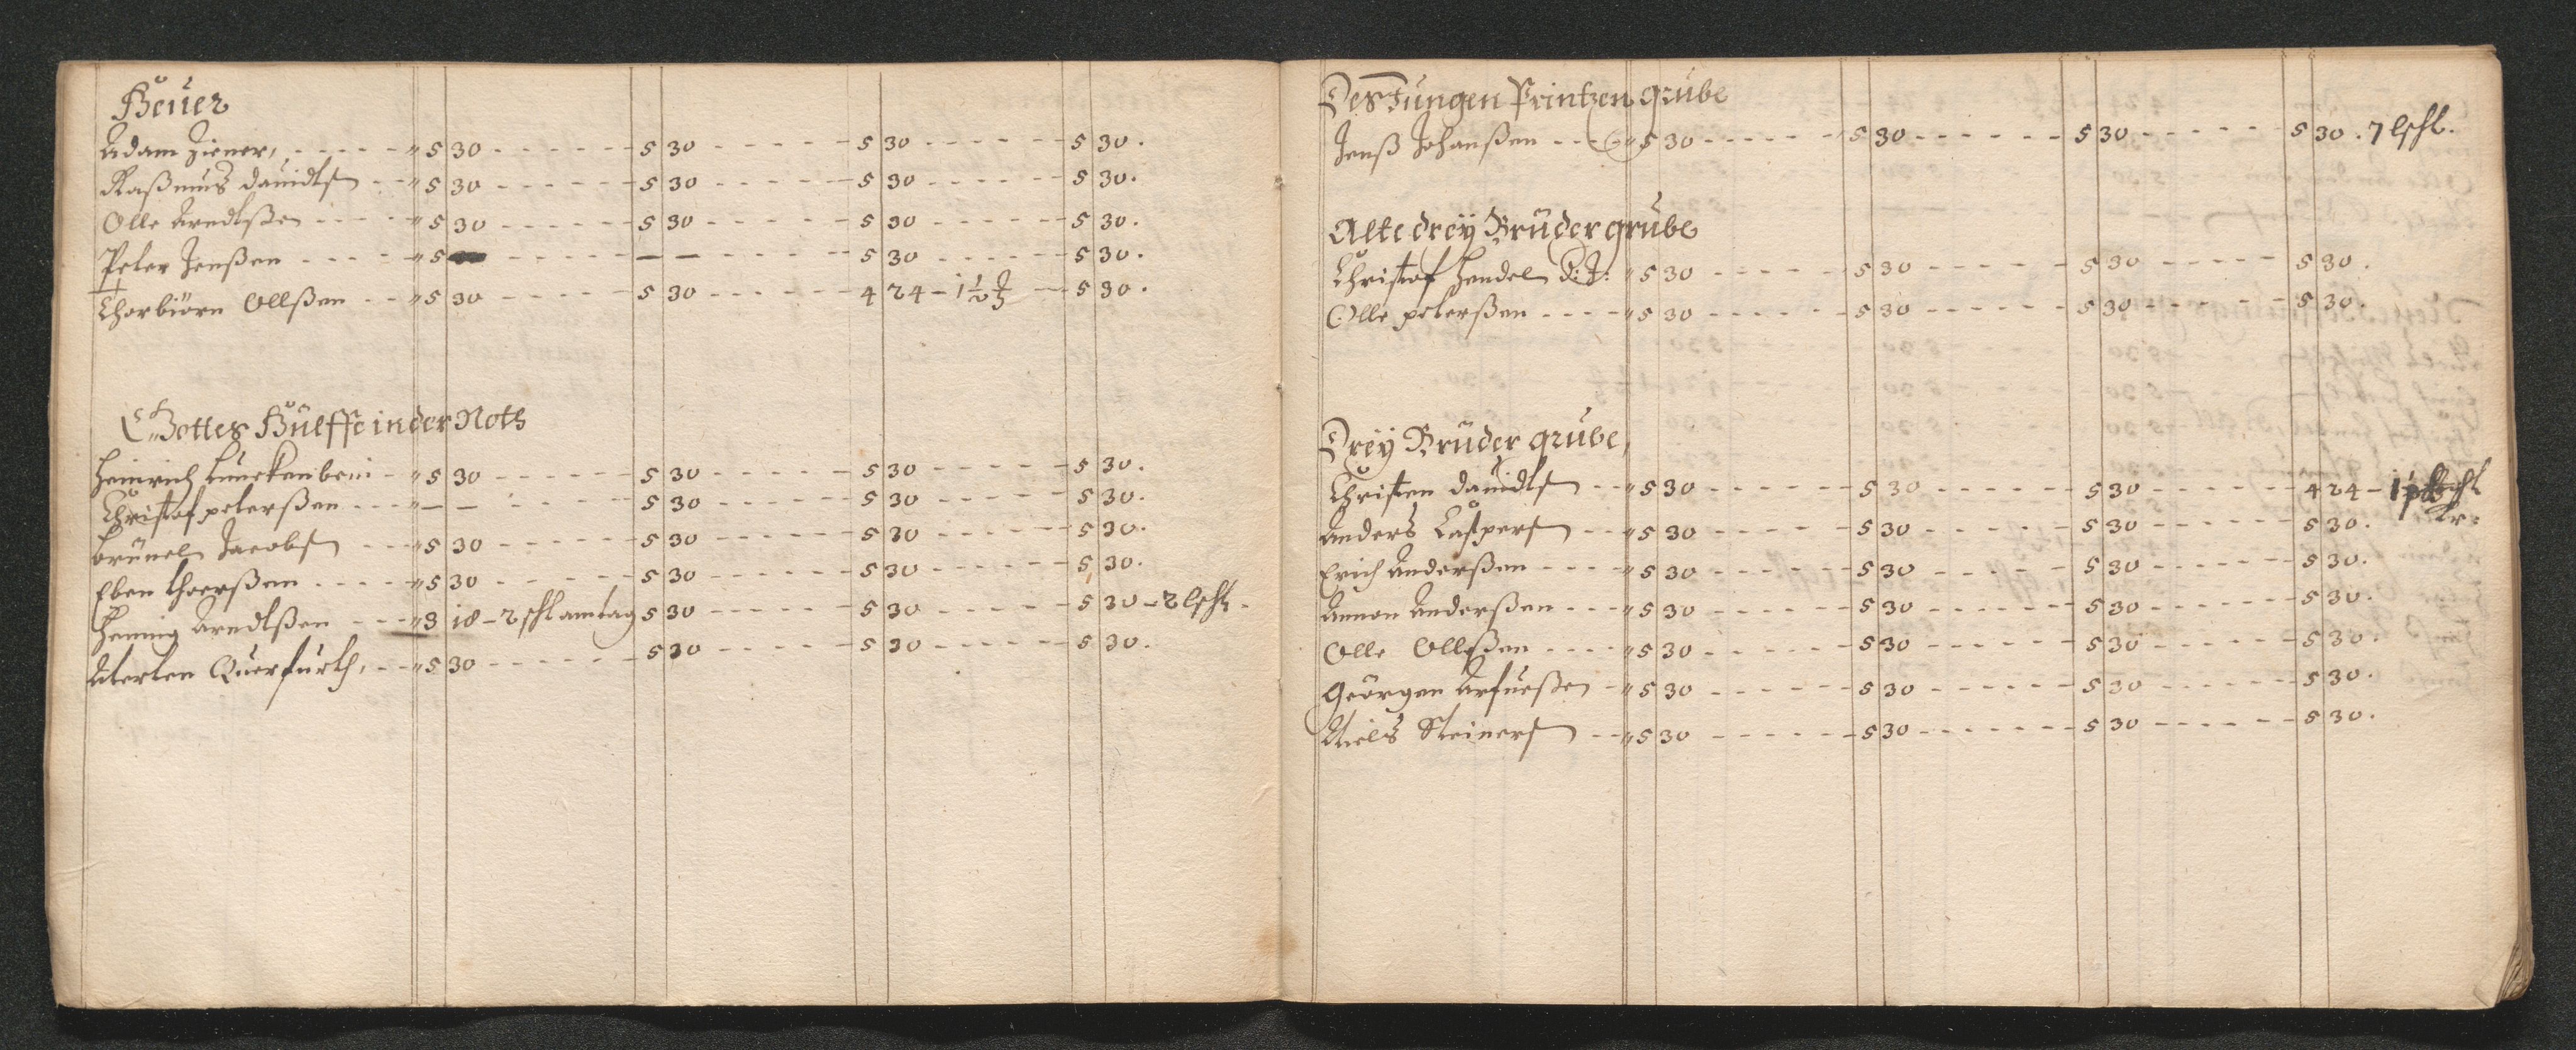 Heüer
Adam Ziener, - - - - - " 5 30 - - - - - - 5 30 - - - - - - 5 30 - - - - - - 5 30.
Raßmus Dauidtß - - " 5 30 - - - - - - 5 30 - - - - - - 5 30 - - - - - 5 30.
Olle Arndtßen - - - - " 5 30 - - - - - - 5 30 - - - - - - 5 30 - - - - - - 5 30.
Peter Jenßen - - - - " 5 - - - - - - — — - - - - - - 5 30 - - - - - - 5 30.
Thorbiörn Ollßen - - " 5 30 - - - - - 5 30 - - - - - - 4 24 - 1½ - 5 30.
Gottes Hülffe in der Noth
Heinrich Lunckenbein - " 5 30 - - - - - - 5 30 - - - - - - 5 30 - - - - - - 5 30.
Christof peterßen - - - " — — - - - 5 30 - - - - - - 5 30 - - - - - - 5 30.
Brünel Jacobß - - - " 5 30 - - - - - - 5 30 - - - - - - 5 30 - - - - - - 5 30.
Eben thorßen - - - - - " 5 30 - - - - - - 5 30 - - - - - - 5 30 - - - - - - 5 30.
Hennig Arndtßen - - - " 3 18 - 2 schl am tag 5 30 - - - - - - 5 30 - - - - - - 5 30 - 2 lschl.
Merten Querfurth, - - " 5 30 - - - - - - 5 30 - - - - - - 5 30 - - - - - - 5 30.
Des Jungen Printzen grube
Jenß Johanßen - - - " 5 30 - - - - - - 5 30 - - - - - - 5 30 - - - - - - 5 30. 7 lschl.
Alte drey Brüder grube
Christof Hendel D: J: " 5 30 - - - - - - 5 30 - - - - - - 5 30 - - - - - - 5 30.
Olle peterßen - - - - " 5 30 - - - - - - 5 30 - - - - - - 5 30 - - - - - - 5 30.
Drey Brüder grube,
Christen Dauidtß - - " 5 30 - - - - - - 5 30 - - - - - - 5 30 - - - - - - 4 24 -
Anders Casperß - - " 5 30 - - - - - - 5 30 - - - - - - 5 30 - - - - - - 5 30.
Erich Anderßen - - - - " 5 30 - - - - - - 5 30 - - - - - - 5 30 - - - - - - 5 30.
Amon Anderßen - - - " 5 30 - - - - - - 5 30 - - - - - - 5 30 - - - - - - 5 30.
Olle Ollßen - - - - " 5 30 - - - - - - 5 30 - - - - - - 5 30 - - - - - - 5 30.
Geörgen - " 5 30 - - - - - - 5 30 - - - - - - 5 30 - - - - - - 5 30.
Niels Steinerß - - " 5 30 - - - - - - 5 30 - - - - - - 5 30 - - - - - - 5 30.